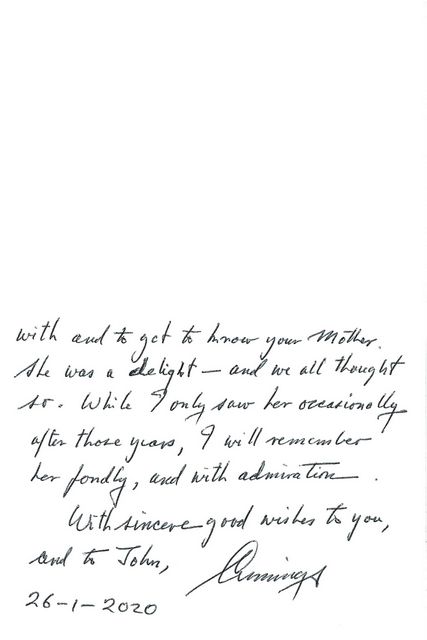 with and to get to know your Mother.
She was a delight — and we all thought
so. While I only saw her occasionally
after those years, I will remember
her fondly, and with admiration.
With sincere good wishes to you,
and to John,
26-1-2020